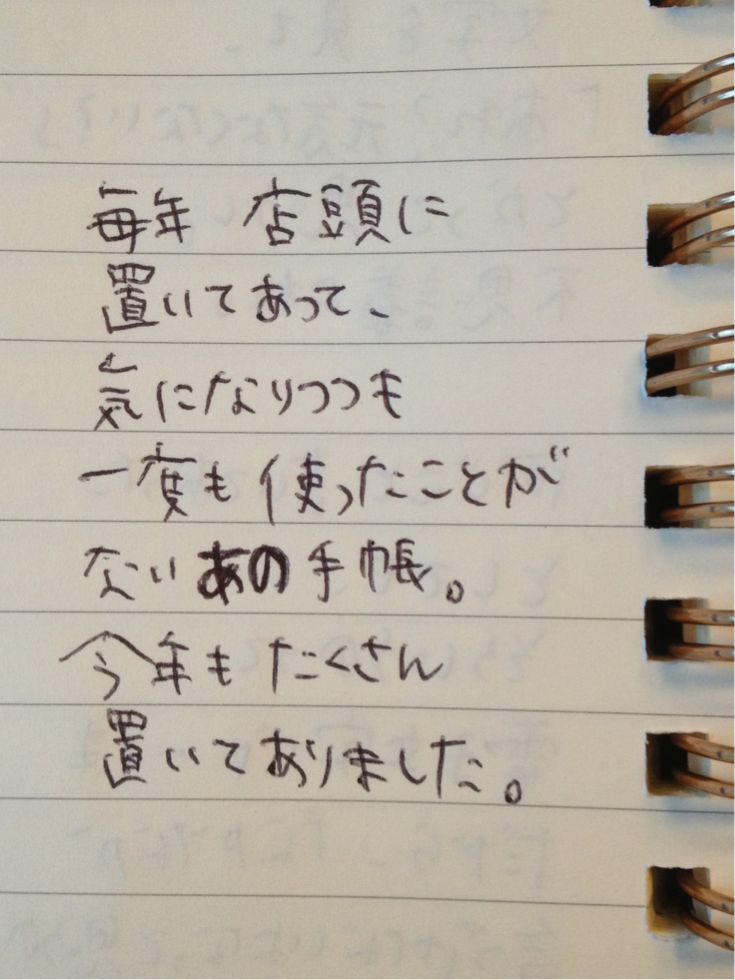 毎年 店頭に
置いてあって、
気になりつつも
一度も使ったことが
ないあの手帳。
今年もたくさん
置いてありました。